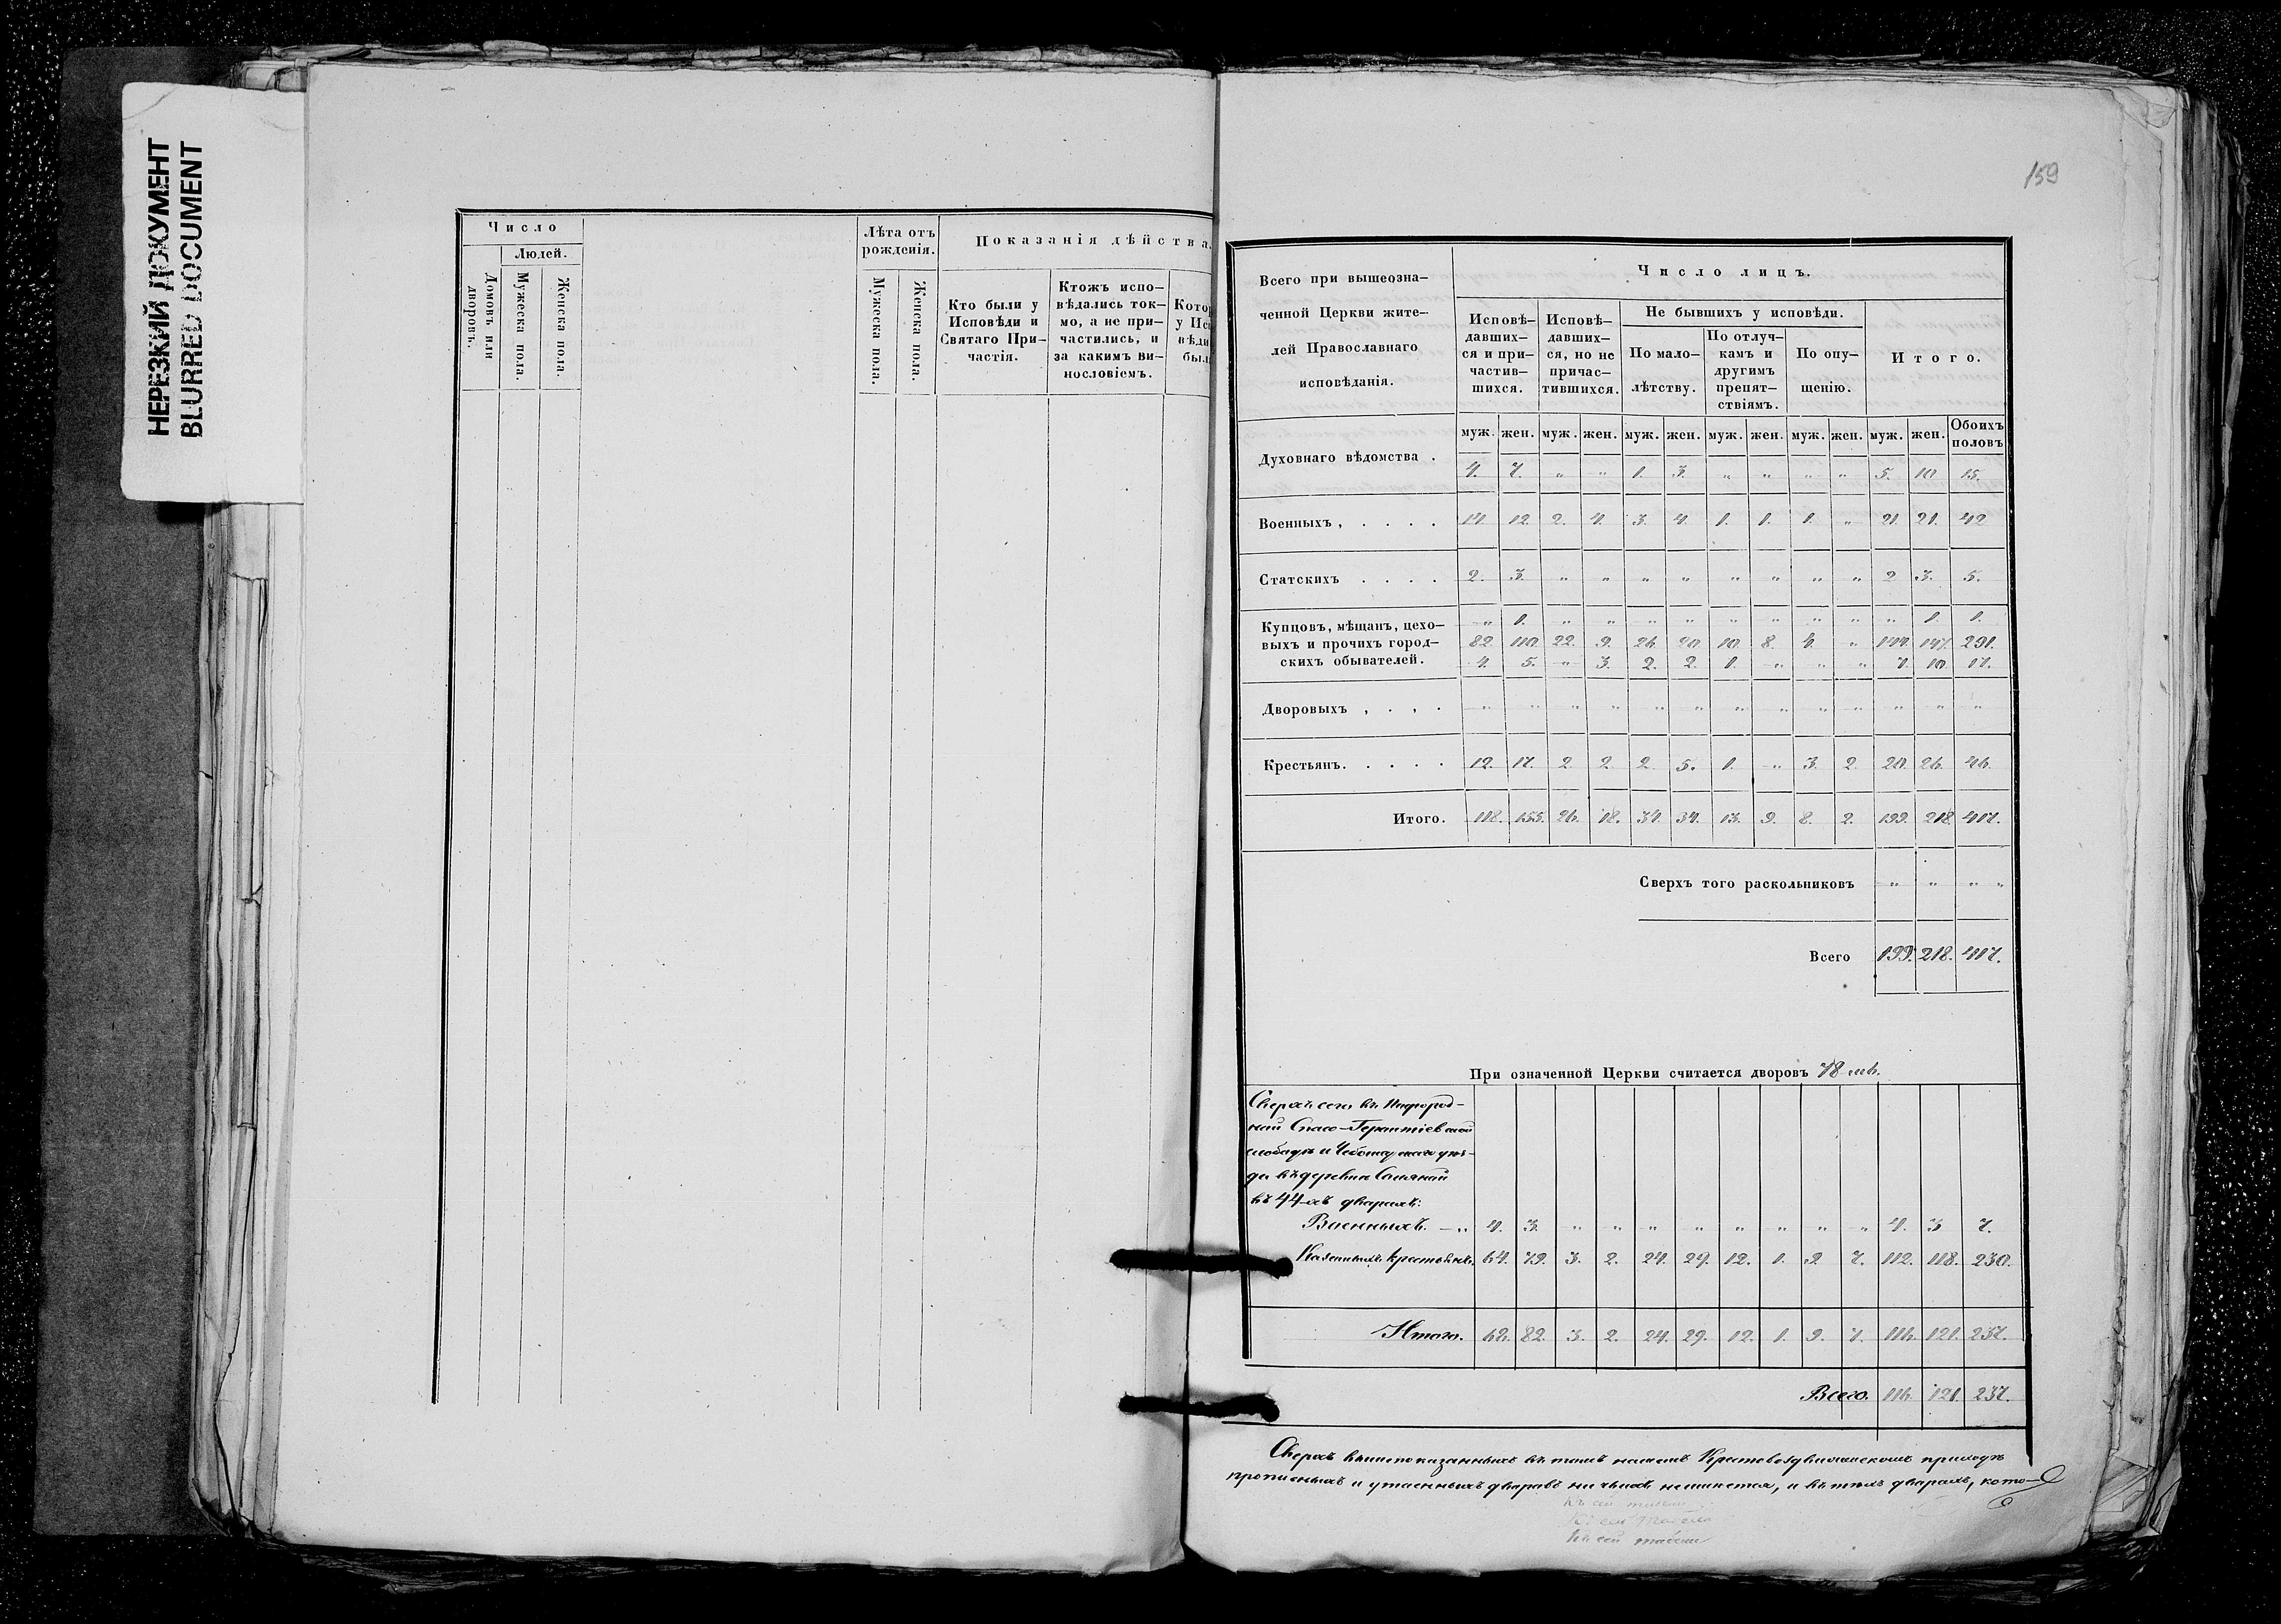 НЕРЕЗКИЙ ДОКУМЕНТ
BLURRED DOCUMENT
Число
Людей.
Домовъ или дворовъ.
Мужеска пола.
Женска пола.
Лѣта отъ рожденія.
Мужеска пола.
Женска пола.
Показанія дѣйства.
Кто были у
Исповѣди и
Святаго При-
частія.
Ктожъ испо-
вѣдались ток-
мо, а не при-
частились, и
за какимъ ви-
нословіемъ.
Кото
у Ис
вѣди
был
159
Всего при вышеозна-
ченной Церкви жите-
лей Православнаго
исповѣданія.
Число лицъ.
Исповѣ-
давших-
ся и при-
частив-
шихся.
Исповѣ-
давших-
ся, но не
причас-
тившихся.
Не бывшихъ у исповѣди.
По мало-
лѣтству.
По отлуч-
камъ и
другимъ
препят-
ствіямъ.
По опу-
щенію.
Итого.
муж. жен. муж. жен. муж. жен. муж. жен. муж. жен. муж. жен. Обоихъ половъ
Духовнаго вѣдомства . 4. 7. „ „ 1. 3. „ „ „ „ 5. 10. 15.
Военныхъ, . . . . 14. 12. 2. 4. 3. 4. 1. 1. 1. „ 21. 21. 42
Статскихъ . . . . 2. 3. „ „ „ „ „ „ „ „ 2 3. 5.
Купцовъ, мѣщанъ, цехо- „ 1. „ „ „ „ „ „ „ „ „ 1. 1.
выхъ и прочихъ город- 82 110. 22. 9. 26. 20. 10. 8. 4. „ 144. 147. 291.
скихъ обывателей. 4. 5. „ 3. 2. 2. 1. „ „ „ 7. 10. 17.
Дворовыхъ , . , . „ „ „ „ „ „ „ „ „ „ „ „ „
Крестьянъ. . . . . 12. 17. 2. 2. 2. 5. 1. „ 3. 2. 20. 26. 46.
Итого. 118. 155. 26. 18. 34. 34. 13. 9. 8. 2. 199. 218. 417.
Сверхъ того раскольниковъ „ „ „ „
Всего 199. 218. 417.
При означенной Церкви считается дворовъ 78
Сверхъ сего въ Подгород-
ной Спасо-Геронтіевской
слободѣ и Чебоксарскаго уѣз-
да въ деревнѣ
въ 44-хъ дворахъ:
Военныхъ. — „ 4. 3. „ „ „ „ „ „ „ „ 4. 3 7.
Казенныхъ крестьянъ. 64. 79. 3. 2. 24. 29. 12. 1. 9 7. 112. 118. 230.
Итого. 68. 82. 3. 2. 24. 29. 12. 1. 9. 7. 116. 121. 237.
Всего. 116. 121. 237.
Сверхъ вышепоказанныхъ въ томъ нашемъ Крестовоздвиженскомъ приходѣ
прописныхъ и утаенныхъ дворовъ ни чьихъ не имѣется, и въ тѣхъ дворахъ, кото-
Къ сей табели
Къ сей табели
Къ сей табели